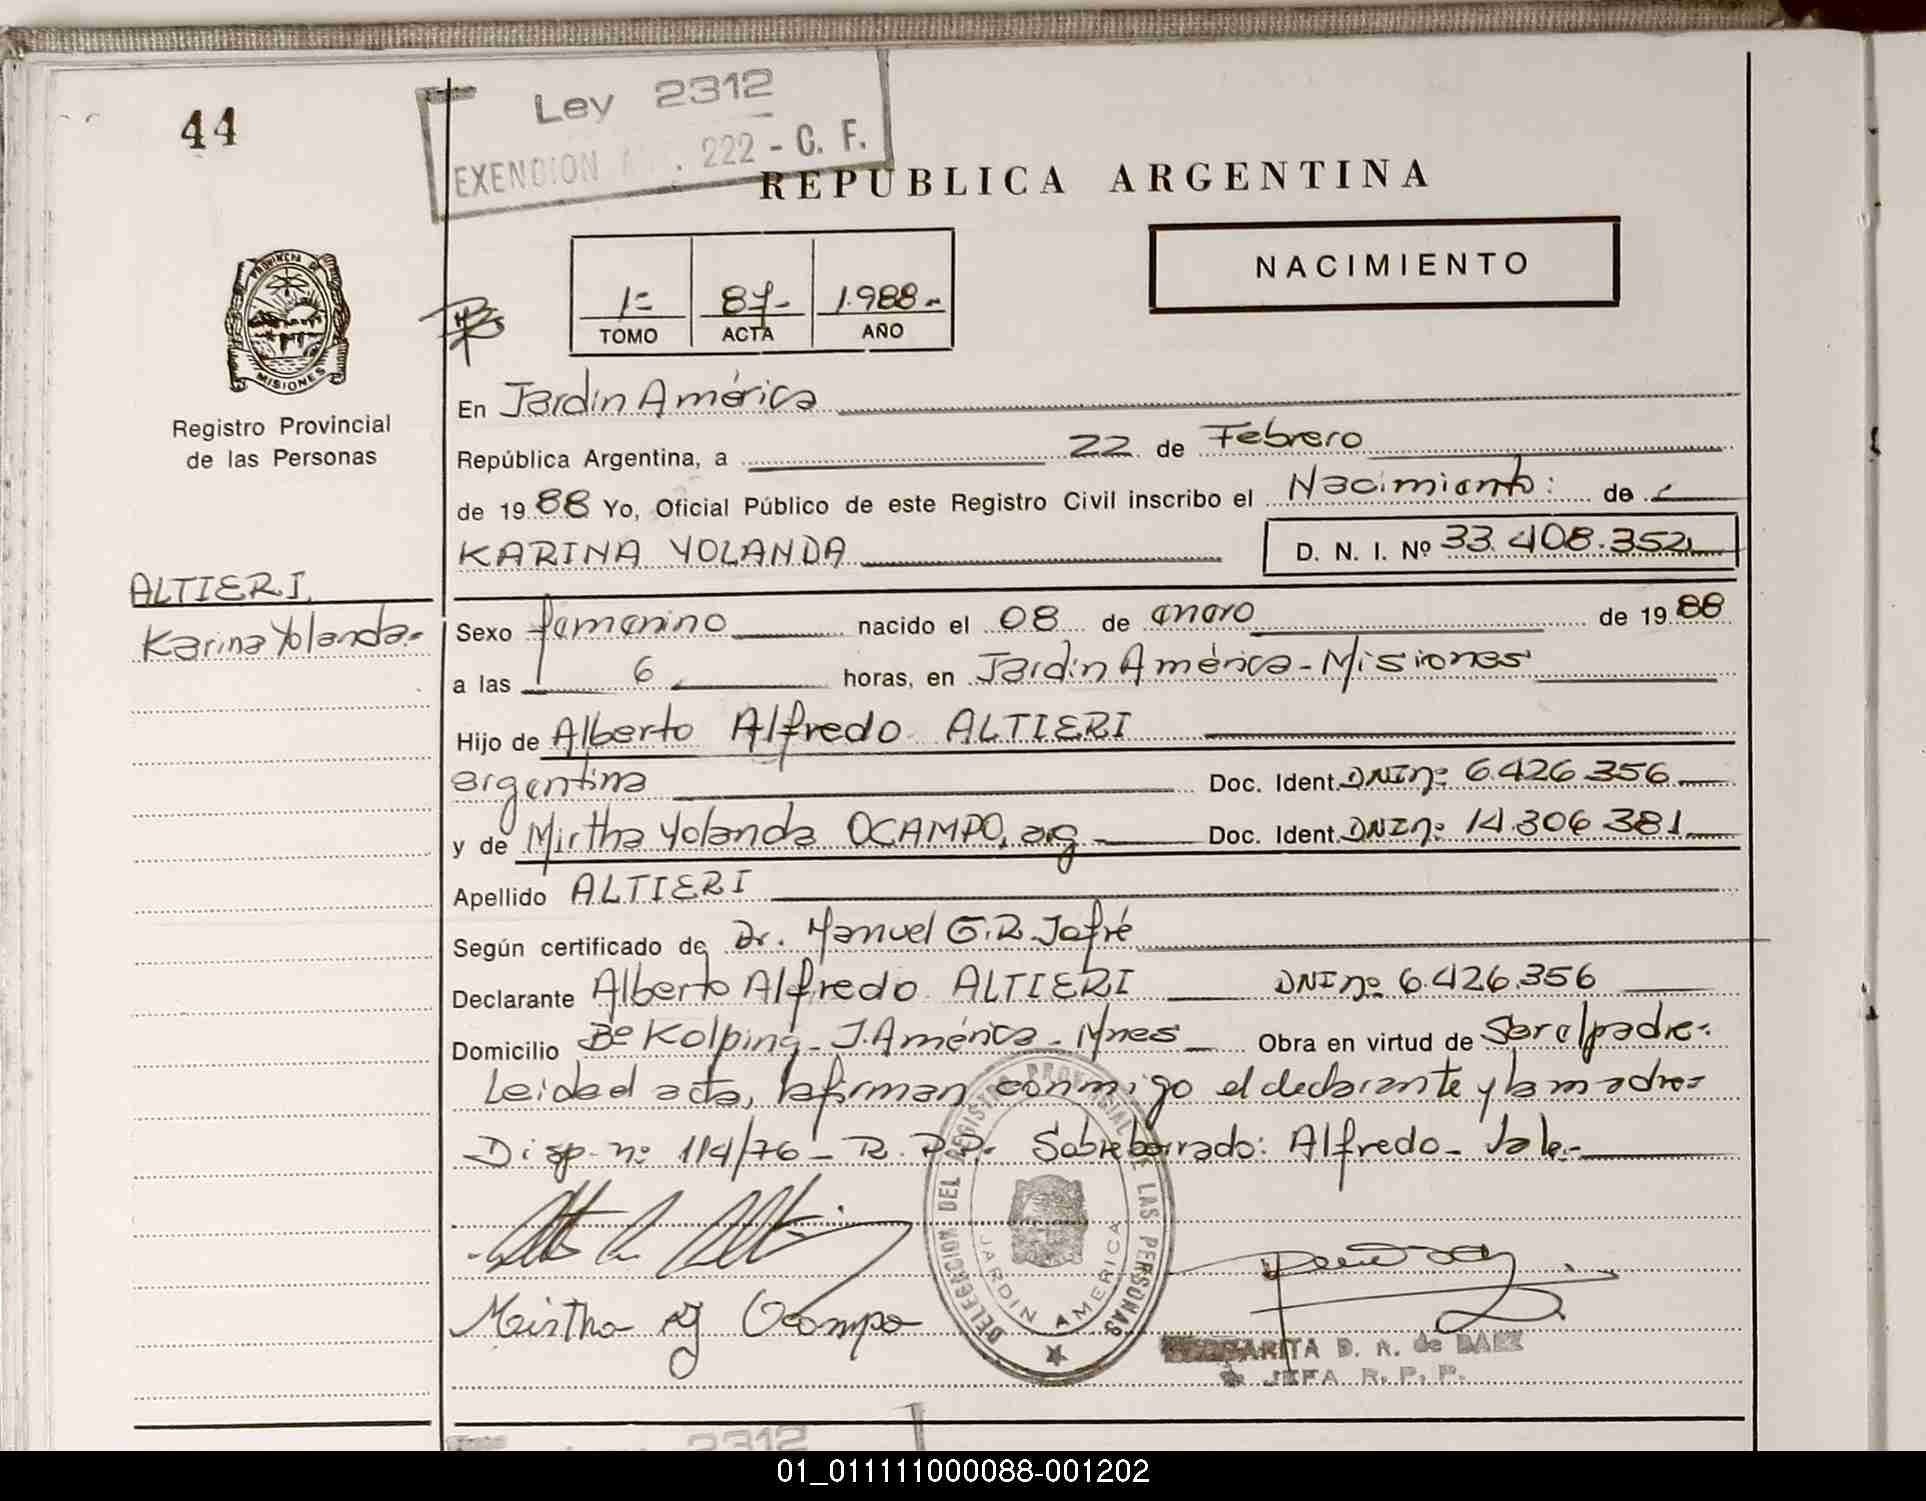 44
Ley 2312
EXENCION . 222 - C. F.
REPUBLICA ARGENTINA
NACIMIENTO
1= 87- 1.988-
TOMO ACTA AÑO
PROVINCIA DE
MISIONES
Registro Provincial
de las Personas
ALTIERI
Karina Yolanda.-
En Jardin América
República Argentina, a 22 de Febrero
de 1988 Yo, Oficial Público de este Registro Civil inscribo el Nacimiento: de
KARINA YOLANDA D. N. I. Nº 33.408.352
Sexo femenino nacido el 08 de enero de 1988
a las 6 horas, en Jardin América - Misiones
Hijo de Alberto Alfredo ALTIERI
argentina Doc. Ident. DNI nº 6.426.356
y de Mirtha Yolanda OCAMPO, arg Doc. Ident. DNI nº 14.306.381
Apellido ALTIERI
Según certificado de Dr. Manuel G.R. Jofré
Declarante Alberto Alfredo ALTIERI DNI nº 6.426.356
Domicilio Bº Kolping - J. América - Mnes Obra en virtud de Ser el padre.-
Leida el acta, la firman conmigo el declarante y la madre=
Disp. nº 114/76 - R.P.P.. Sobreborrado: Alfredo - Vale.-
Mirtha Y Ocampo
DELEGACION DEL REGISTRO PROVINCIAL DE LAS PERSONAS
JARDIN AMERICA
D. R. de BAEZ
JEFA R. P. P.
2312
01_011111000088-001202